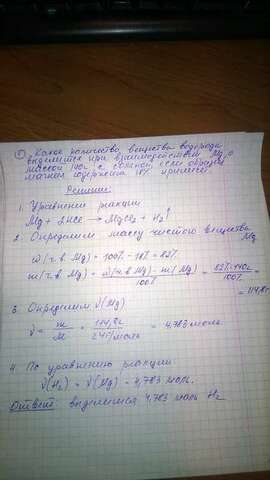 ① Какое количество вещества водорода
выделится при взаимодействии Mg
массой 140г с соляной, если образец
магния содержит 18% примесей
Решение:
1. Уравнение реакции
Mg + 2HCl → MgCl₂ + H₂↑
2. Определим массу чистого вещества
Mg
ω(ч.в Mg) = 100% - 18% = 82%
m(ч.в Mg) = ω(ч.в Mg) · m(Mg) / 100% = 82% · 140г / 100% =
= 114,8г
3. Определим ν(Mg)
ν = m / M = 114,8г / 24г/моль = 4,783 моль
4. По уравнению реакции
ν(H₂) = ν(Mg) = 4,783 моль.
Ответ: выделится 4,783 моль H₂